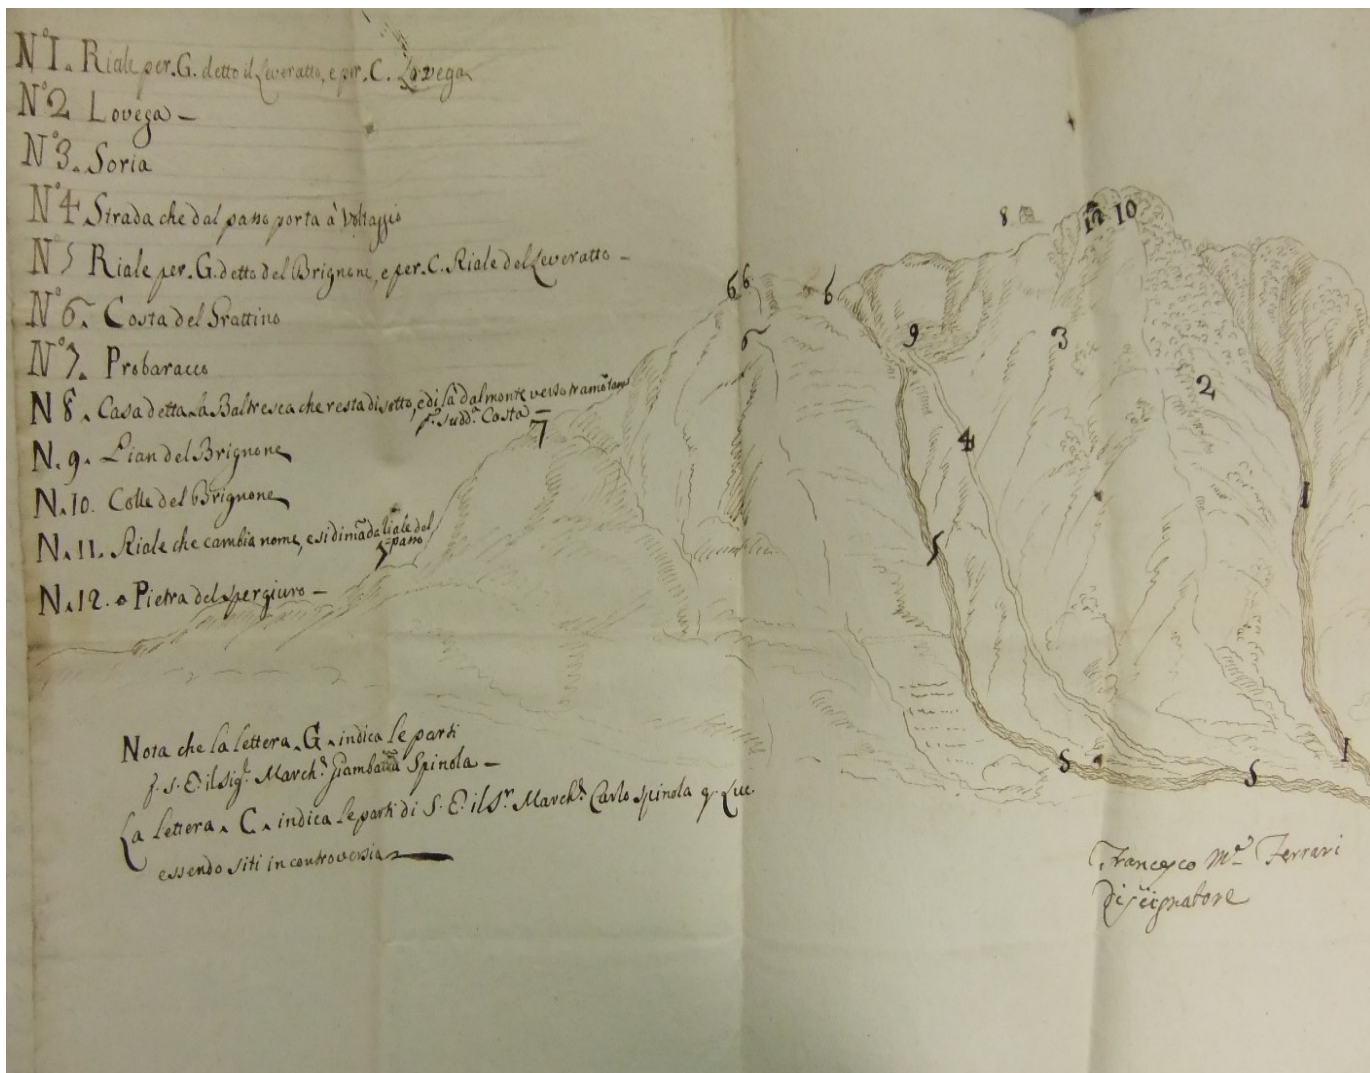 N.º 1. Riale per. G. detto il Leveratto, e per. C. Lovega
N.º 2 Lovega -
N.º 3. Soria
N.º 4 Strada che dal passo porta à Voltaggio
N.º 5 Riale per. G. detto del Brignone, e per. C. Riale del Leveratto -
N.º 6. Costa del Frattino
N.º 7. Probaracco
N 8. Casa detta la Baltresca che resta di sotto, e di là dal monte verso tramõtana
sudd.ª Costa -
N. 9. Pian del Brignone
N. 10. Colle del Brignone
N. 11. Riale che cambia nome, e si dimãda Riale del
passo
N. 12. o Pietra del spergiuro -
8
12 10
6 6
6
9
3
6
2
7
4
1
5
5
5
5
1
Nota che la lettera. G. indica le parti
S. E. il Sig.r March.e Giambatta Spinola -
La lettera. C. indica le parti di S. E. il S.r March.e Carlo Spinola q. Luc.
essendo siti in controversia
Francesco M.a Ferrari